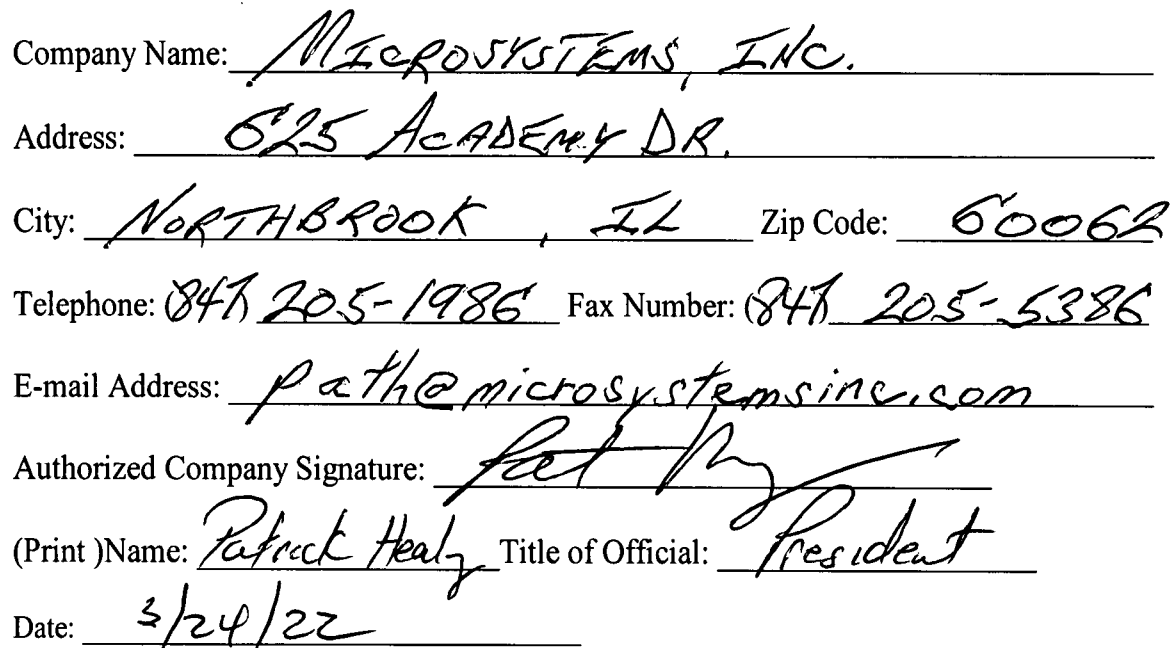 Company Name: MICROSYSTEMS, INC.
Address: 625 ACADEMY DR.
City: NORTHBROOK, IL Zip Code: 60062
Telephone: (847) 205-1986 Fax Number: (847) 205-5386
E-mail Address: path@microsystemsinc.com
Authorized Company Signature: Pat
(Print )Name: Patrick Healy Title of Official: President
Date: 3/24/22